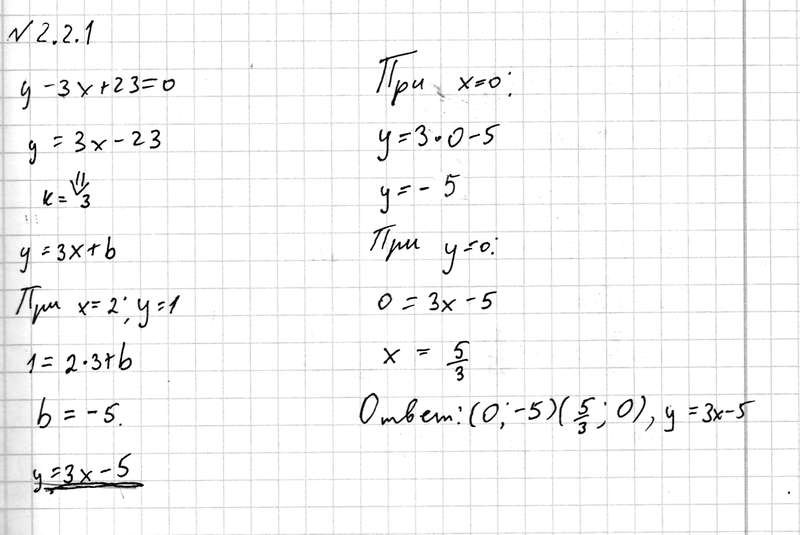 № 2.2.1
y - 3x + 23 = 0
y = 3x - 23
⇓
k = 3
y = 3x + b
При x = 2; y = 1
1 = 2·3 + b
b = -5.
y = 3x - 5
При x = 0:
y = 3·0 - 5
y = - 5
При y = 0:
0 = 3x - 5
x = 5/3
Ответ: (0; -5)(5/3; 0), y = 3x - 5